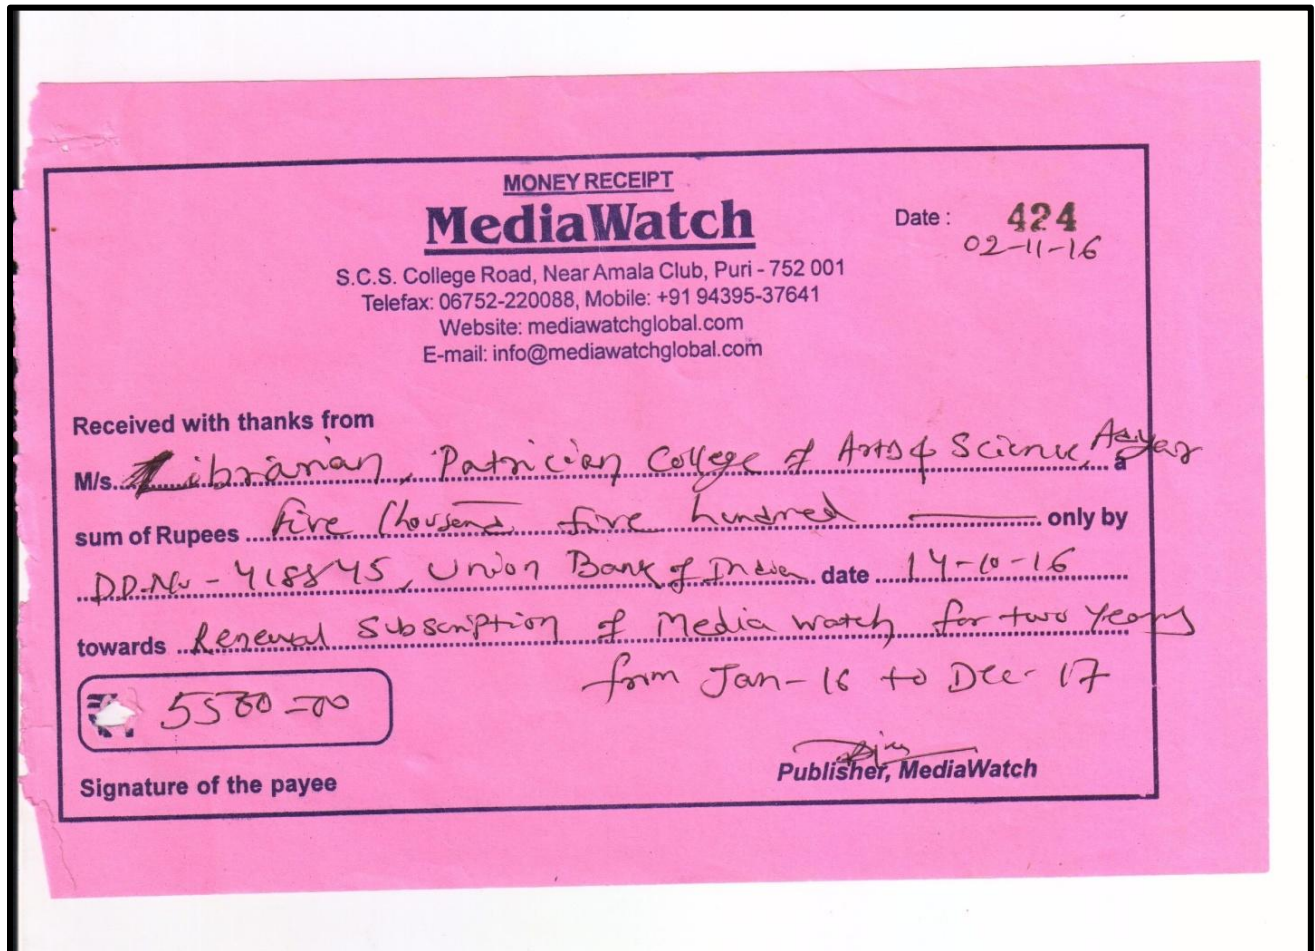 MONEY RECEIPT
MediaWatch
Date : 424
02-11-16
S.C.S. College Road, Near Amala Club, Puri - 752 001
Telefax: 06752-220088, Mobile: +91 94395-37641
Website: mediawatchglobal.com
E-mail: info@mediawatchglobal.com
Received with thanks from
M/s. Librarian, Patrician College of Arts & Science, a
sum of Rupees five thousand five hundred only by
DD.No - 418845, Union Bank of India date 14-10-16
towards Renewal Subscription of Media watch for two years
from Jan-16 to Dec-17
5500-00
Signature of the payee
Publisher, MediaWatch